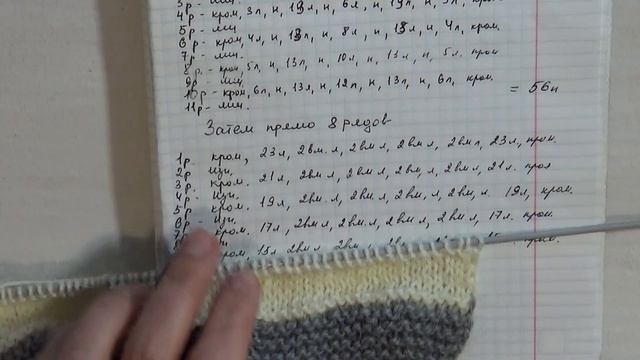 3р - лиц.
4р - кром, 3л, н, 13л, н, 6л, н, 13л, н, 3л, кром.
5р - лиц.
6р - кром, 4л, н, 13л, н, 8л, н, 13л, н, 4л, кром.
7р - лиц.
8р. - кром, 5л, н, 13л, н, 10л, н, 13л, н, 5л. кром
9р - лиц.
10р - кром, 6л, н, 13л, н, 12л, н, 13л, н, 6л, кром. = 56п
11р - лиц.
Затем прямо 8 рядов
1р. кром, 23л, 2вм.л, 2вмл, 2вмл, 2вмл, 23л, кром.
2р изн.
3р. кром. 21л, 2вмл, 2вмл, 2вмл, 2вмл, 21л. кром
4р - изн.
5р. кром. 19л, 2вмл, 2вмл, 2вмл, 2вм.л. 19л, кром.
6р - изн.
7р. кром. 17л, 2вмл, 2вмл, 2вмл, 2вмл, 17л. кром.
кром, 15л 2вмл, 2вм